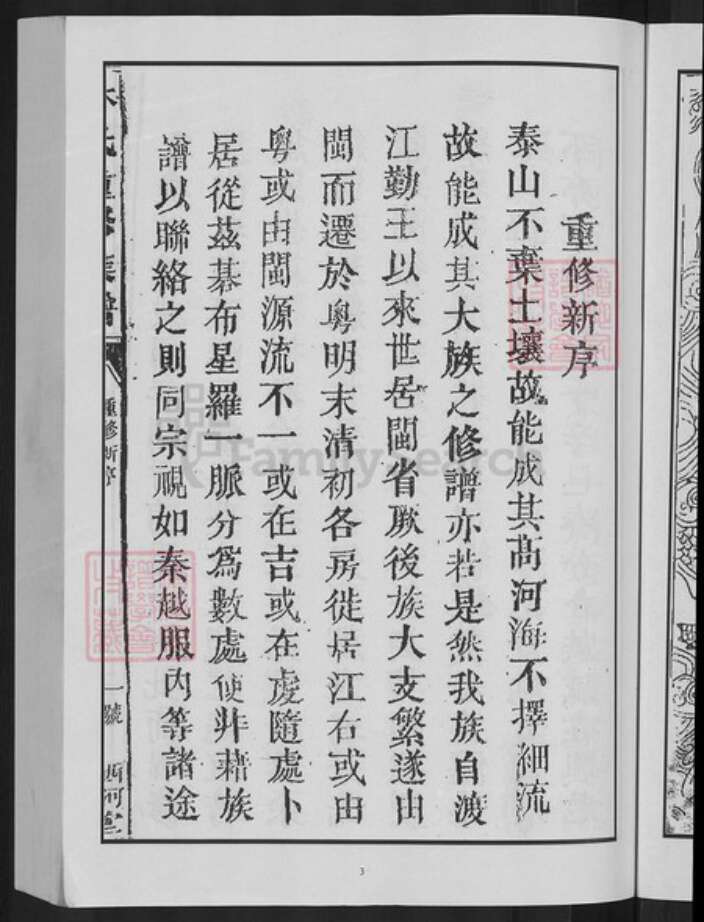 重修新序
泰山不棄土壤故能成其高河海不擇細流
故能成其大族之修譜亦若是然我族自渡
江勤王以來世居閩省厥後族大支繁遂由
閩而遷於粵明末清初各房徙居江右或由
粵或由閩源流不一或在吉或在虔隨處卜
居從茲碁布星羅一脈分為數處使非藉族
譜以聯絡之則同宗視如秦越服內等諸途
氏重修族譜
重修新序
一號
西河堂
FamilySearch
3